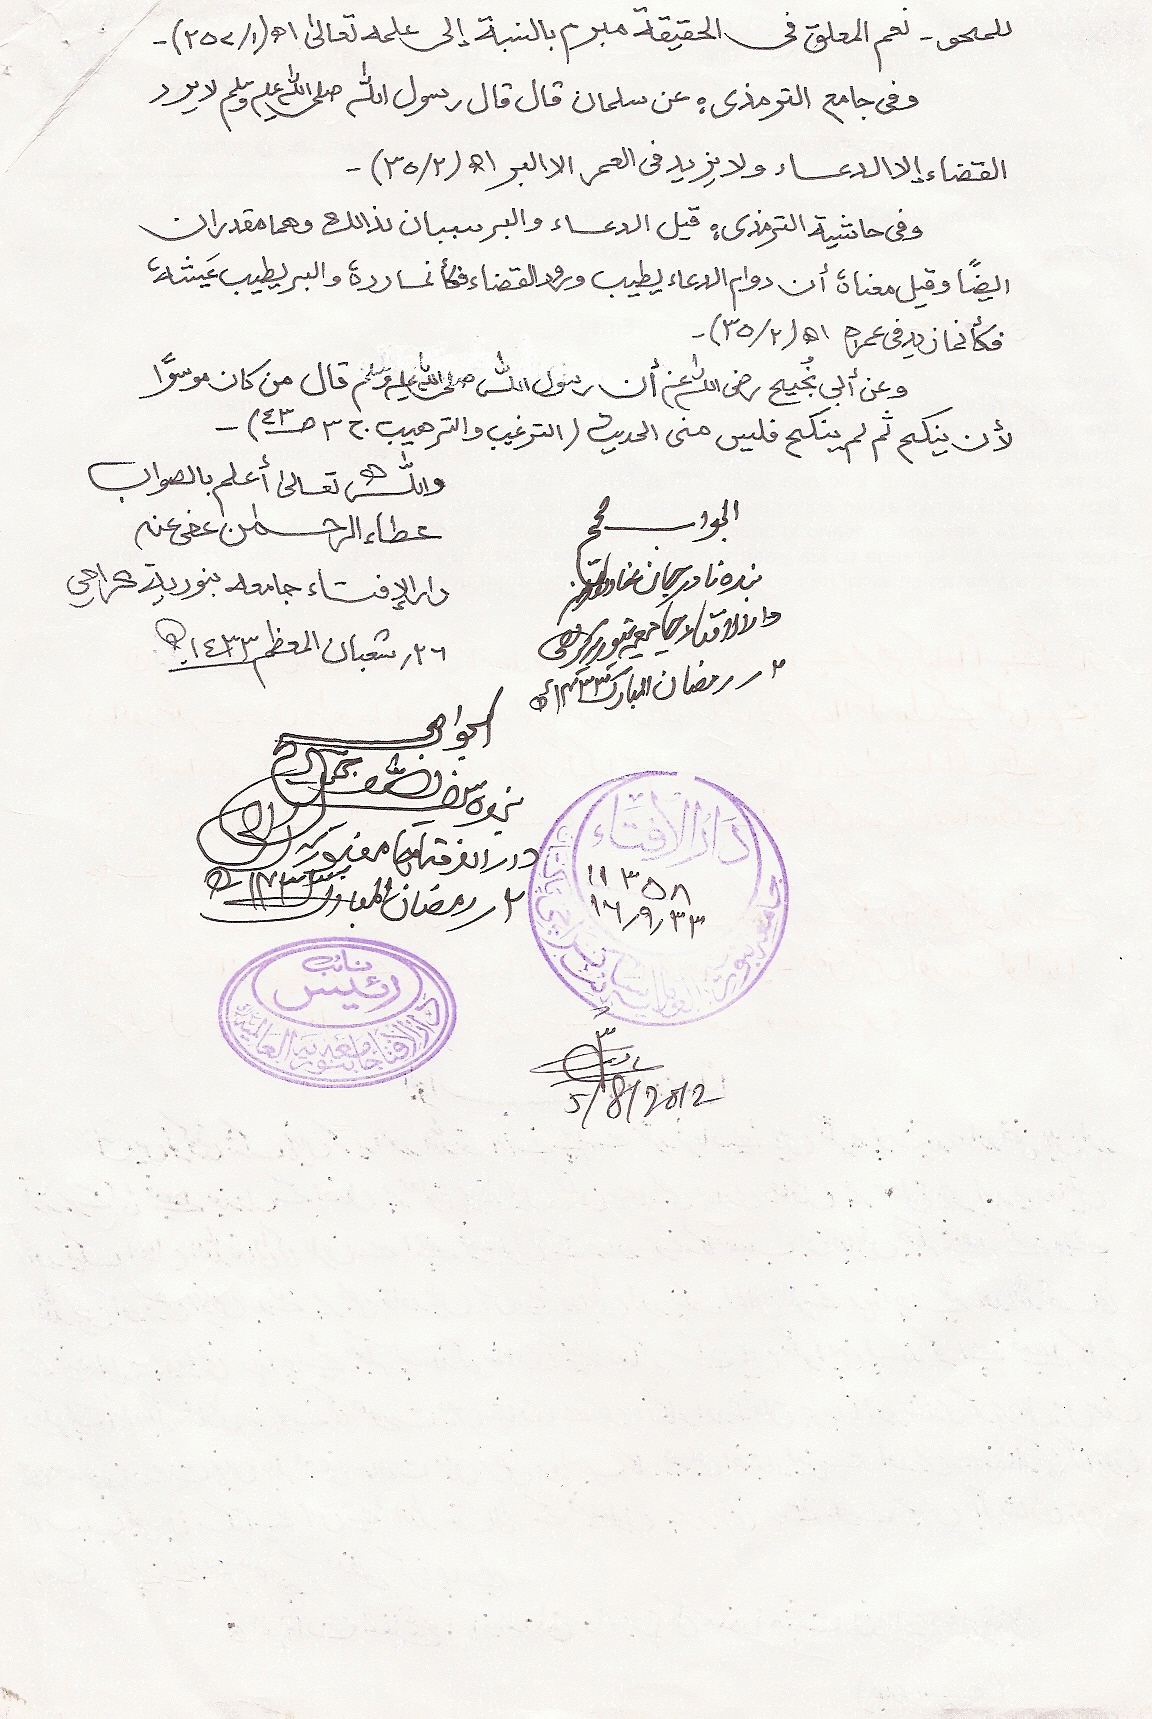 للمحو۔ نعم المعلق فی الحقيقة مبرم بالنسبة إلى علمه تعالىٰ اھ (۱/۲۵۷)۔
وفی جامع الترمذی: عن سلمان قال قال رسول اللہ صلی اللہ علیہ وسلم لا يرد
القضاء إلا الدعاء ولا يزيد فی العمر الا البر اھ (۳۵/۲)۔
وفی حاشية الترمذی: قيل الدعاء والبر سببان لذالك وهما مقدران
ايضًا وقيل معناه أن دوام الدعاء يطيب ورود القضاء فكأنما رده والبر يطيب عَيشه
فكأنما زيد فی عمره اھ (۳۵/۲)۔
وعن أبي نُجيح رضی اللہ عنه أن رسول اللہ صلی اللہ علیہ وسلم قال من كان موسرًا
لأن ينكح ثم لم ينكح فليس منی الحديث (الترغيب والترهيب ج ۳ صـ ٤٣)۔
واللہ تعالىٰ أعلم بالصواب
عطاء الرحمٰن عفی عنہ
دار الإفتاء جامعہ بنوریہ کراچی
۲٦؍ شعبان المعظم ۱٤۳۳ھ
الجواب صحیح
بندہ نادر جان
دار الافتاء جامعہ بنوریہ کراچی
۲؍ رمضان المبارک ۱۴۳۳ھ
الجواب صحیح
بندہ سیف اللہ جمیل
دار الافتاء جامعہ بنوریہ
۲؍ رمضان المبارک ۱۴۳۳ھ
دار الافتاء
۱۱۳۵۸
۱۶/۹/۳۳
جامعہ بنوریہ العالمیہ
نائب
رئیس
دار الافتاء جامعہ بنوریہ العالمیہ
5/8/2012